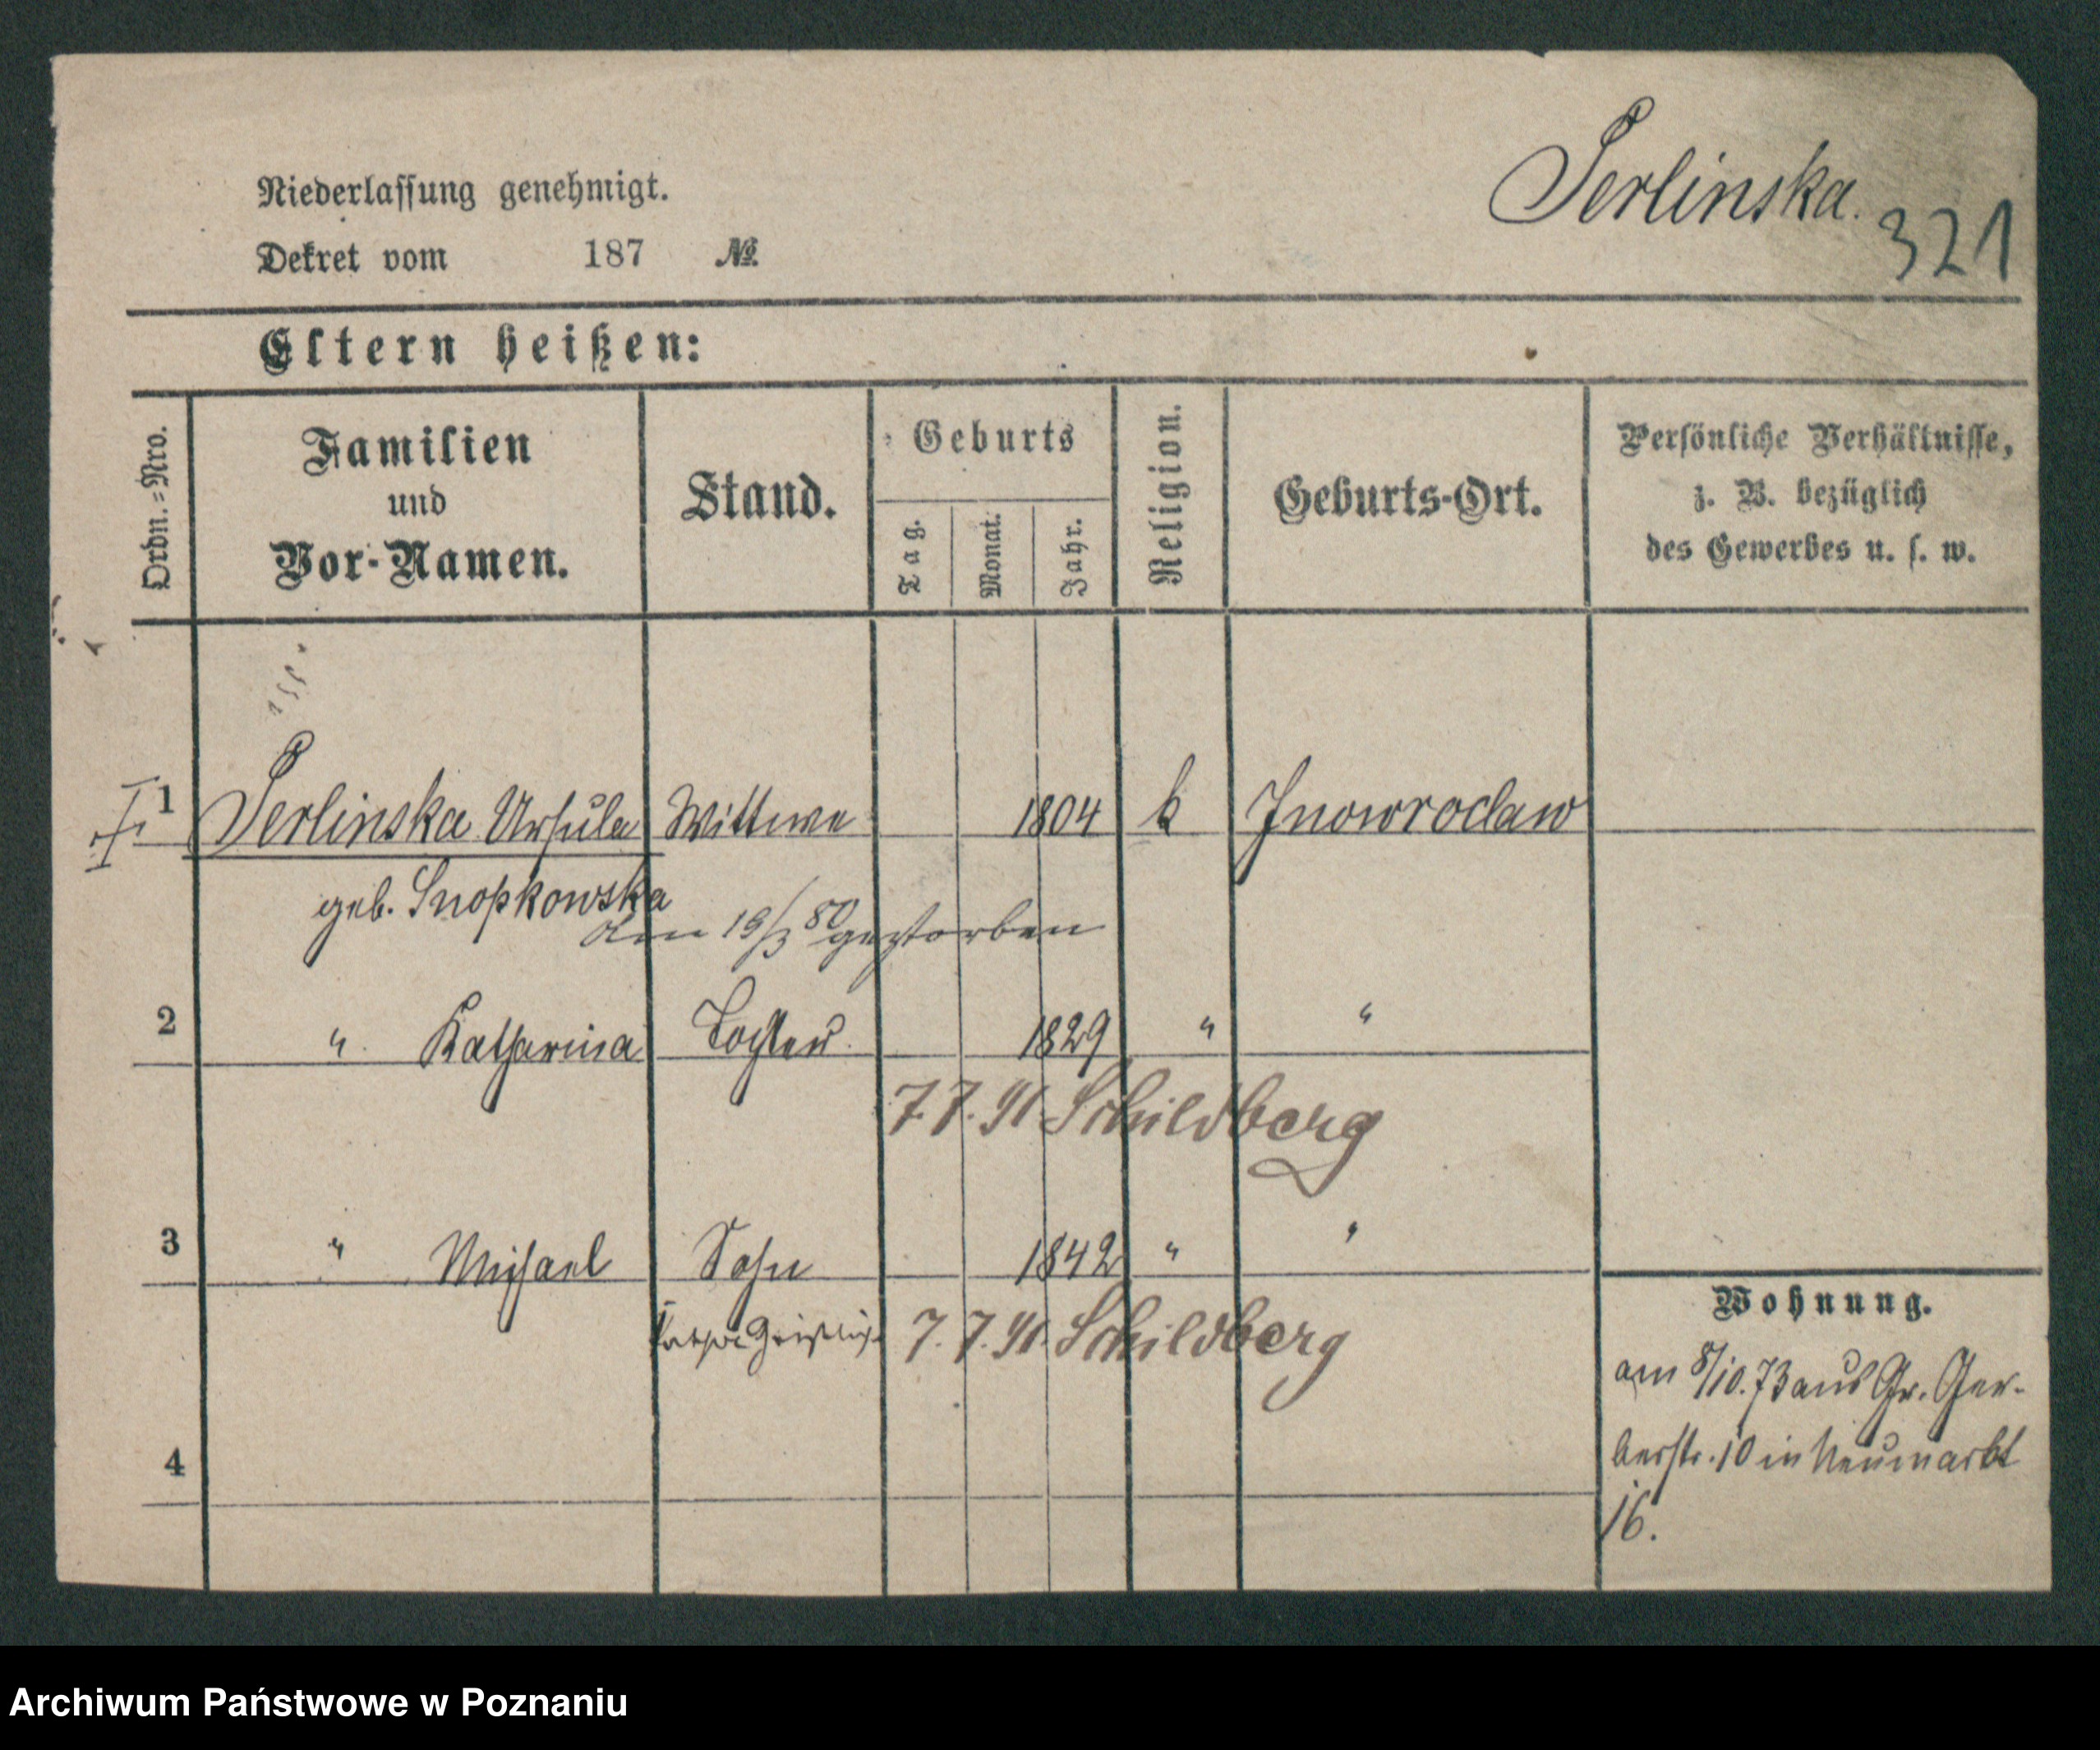 Perlinska.
321
Niederlassung genehmigt.
Dekret vom 187 №
Eltern heißen:
Ordn.=Nro.
Familien
und
Vor-Namen.
Stand.
Geburts
Tag.
Monat.
Jahr.
Religion.
Geburts-Ort.
Persönliche Verhältnisse,
z. B. bezüglich
des Gewerbes u. s. w.
1 Perlinska Ursula Wittwe 1804 k Inowroclaw
geb. Snopkowska
den 19/3 80 gestorben
2 " Katharina Tochter. 1829 " "
7.7.91 Schildberg
3 " Michael Sohn 1842 " "
7.7.91. Schildberg
4
Wohnung.
am 8/10.73 aus Gr. Ger-
berstr. 10 in Neumarkt
16.
Archiwum Państwowe w Poznaniu